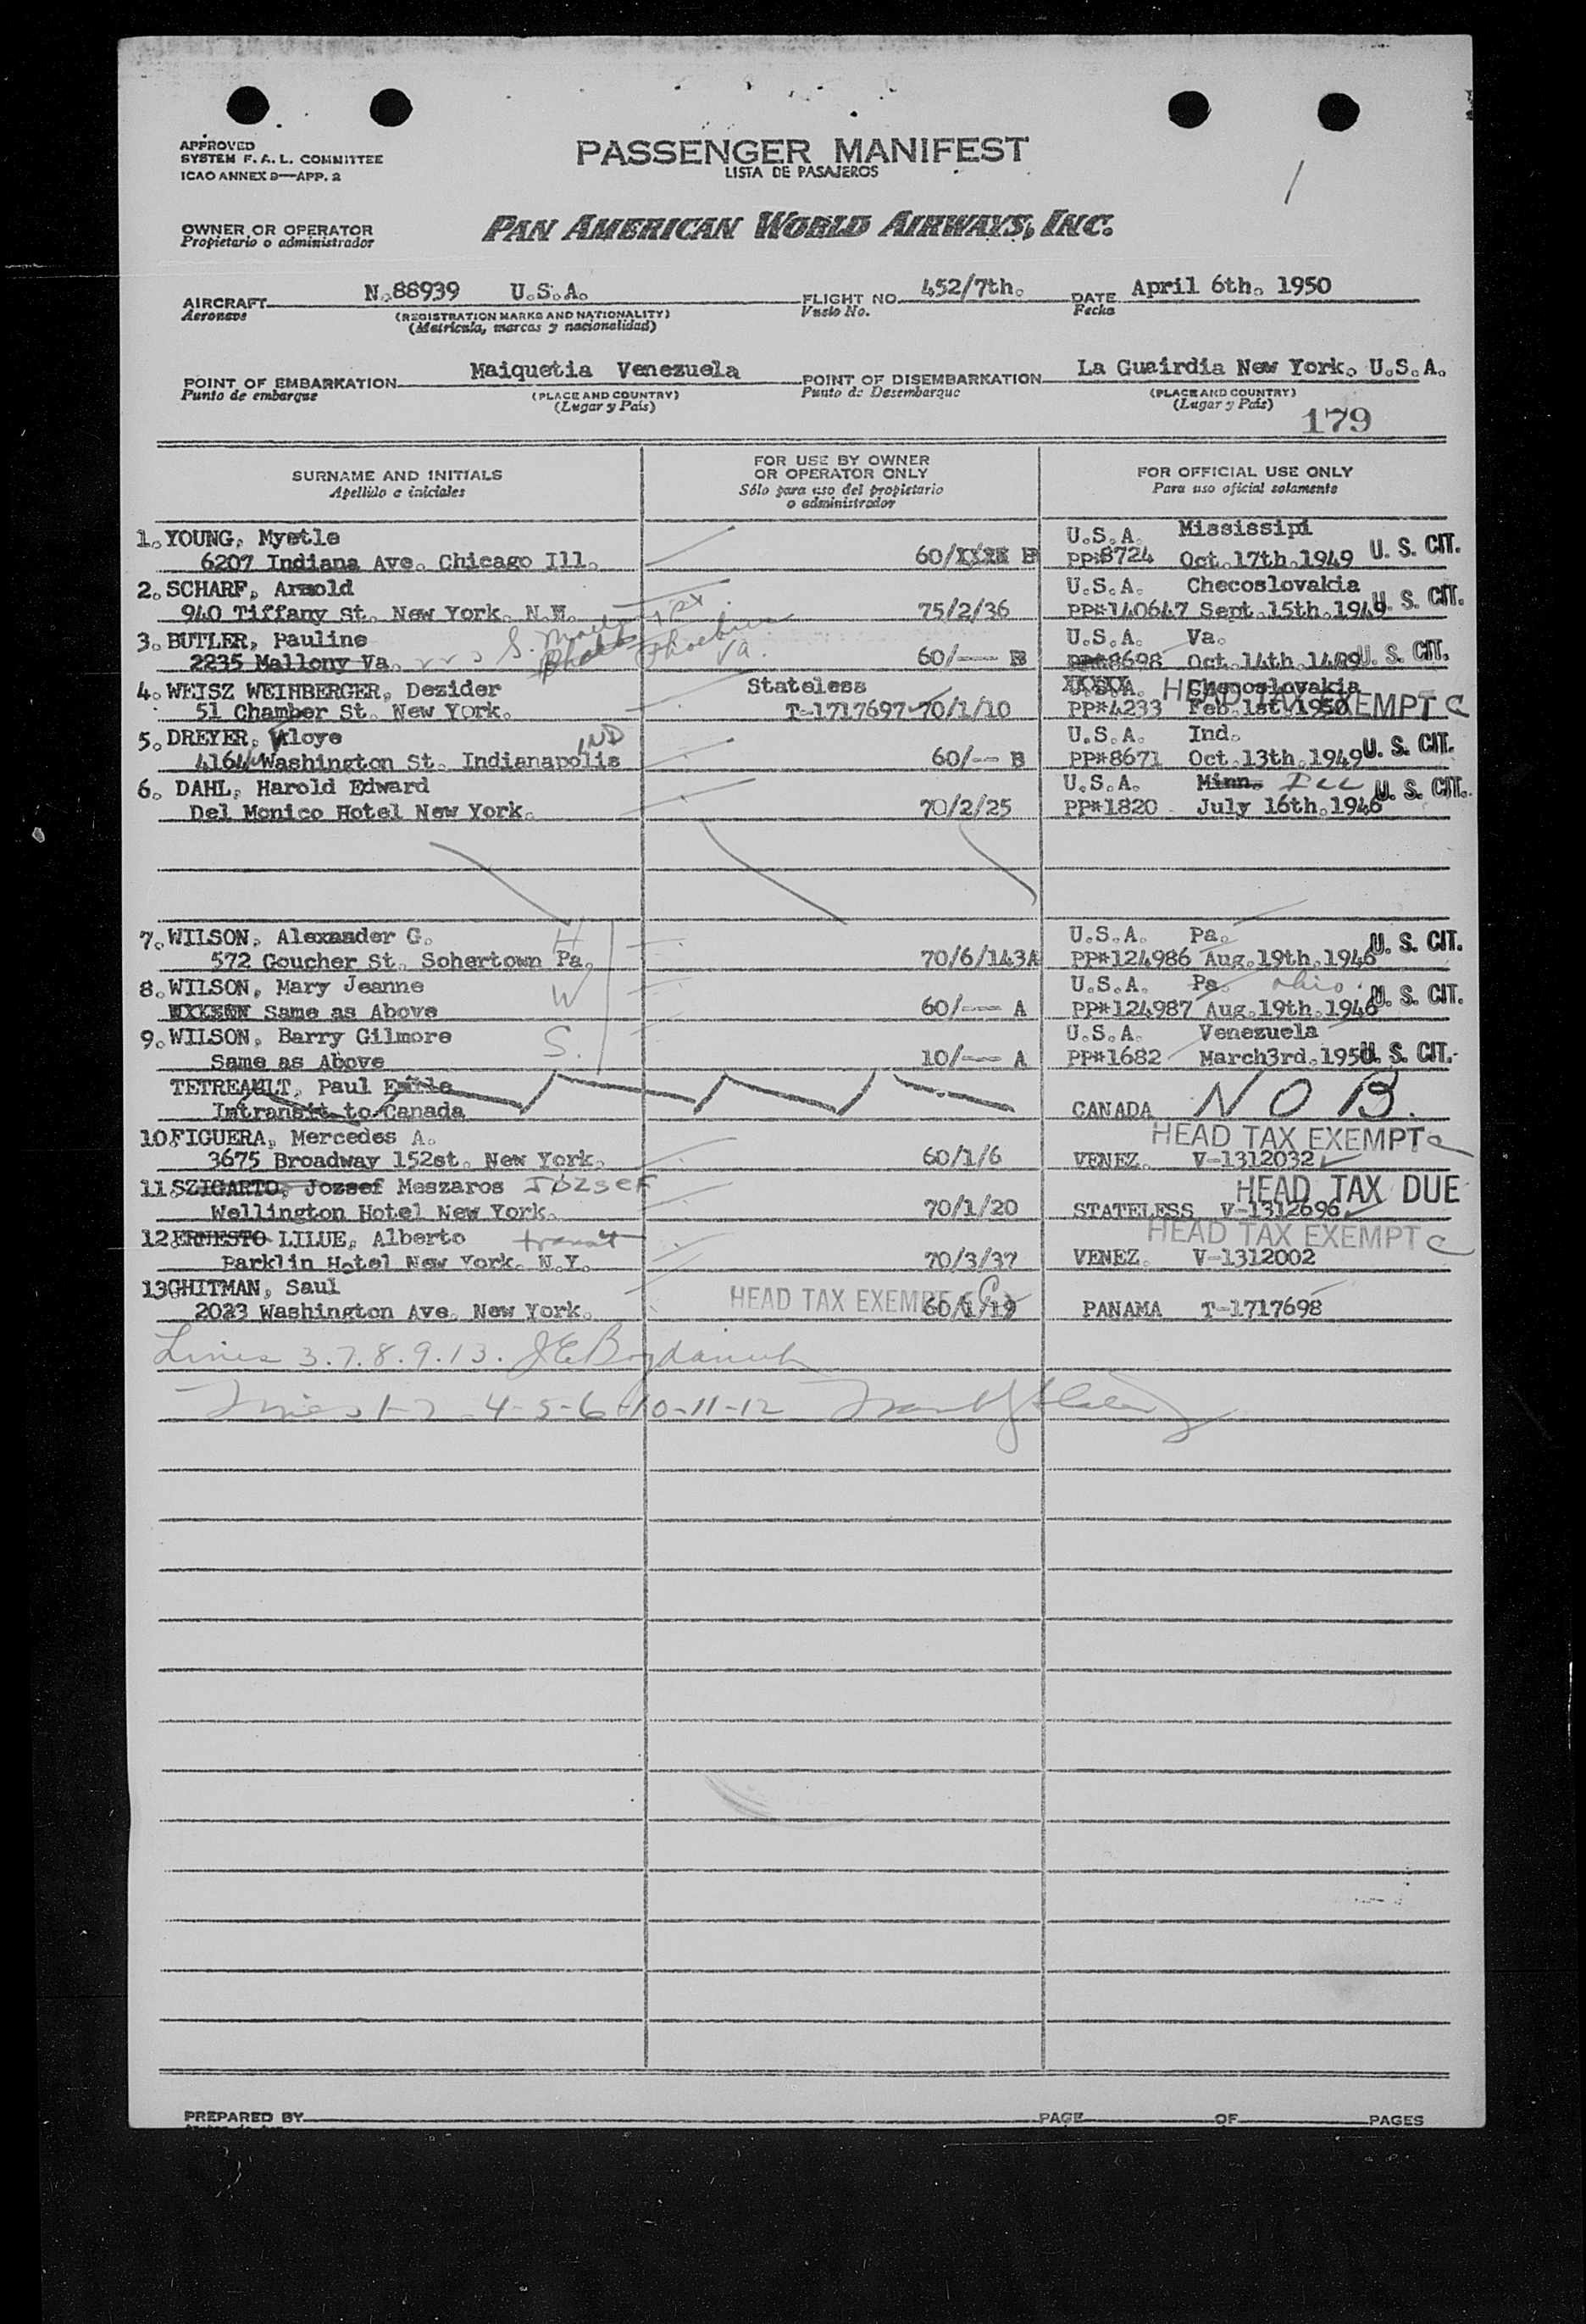 APPROVED
SYSTEM F. A. L. COMMITTEE
ICAO ANNEX 9—APP. 2
PASSENGER MANIFEST
LISTA DE PASAJEROS
OWNER OR OPERATOR
Propietario o administrador
PAN AMERICAN WORLD AIRWAYS, INC.
AIRCRAFT N.88939 U.S.A. FLIGHT NO. 452/7th. DATE April 6th. 1950
Aeronave (REGISTRATION MARKS AND NATIONALITY) Vuelo No. Fecha
(Matrícula, marcas y nacionalidad)
POINT OF EMBARKATION Maiquetia Venezuela POINT OF DISEMBARKATION La Guairdia New York. U.S.A.
Punto de embarque (PLACE AND COUNTRY) Punto de Desembarque (PLACE AND COUNTRY)
(Lugar y País) (Lugar y País)
179
SURNAME AND INITIALS FOR USE BY OWNER OR OPERATOR ONLY FOR OFFICIAL USE ONLY
Apellido e iniciales Sólo para uso del propietario o administrador Para uso oficial solamente
1. YOUNG, Myetle U.S.A. Mississipi
6207 Indiana Ave. Chicago Ill. 60/ B PP#8724 Oct.17th.1949 U. S. CIT.
2. SCHARF, Arnold U.S.A. Checoslovakia
940 Tiffany St. New York. N.Y. 75/2/36 PP#140647 Sept.15th.1949 U. S. CIT.
3. BUTLER, Pauline U.S.A. Va.
2235 Mallony Va. Phoebus Va. 60/--- B PP#8698 Oct.14th.1949 U. S. CIT.
4. WEISZ WEIHBERGER, Dezider Stateless U.S.A. Checoslovakia HEAD TAX EXEMPT C
51 Chamber St. New York. T-1717697 70/1/10 PP#4233 Feb.1st.1950
5. DREYER, Kloye U.S.A. Ind.
4164 Washington St. Indianapolis IND 60/-- B PP#8671 Oct.13th.1949 U. S. CIT.
6. DAHL, Harold Edward U.S.A. Minn. Ill
Del Monico Hotel New York. 70/2/25 PP#1820 July 16th.1946 U. S. CIT.
7. WILSON, Alexander G. H U.S.A. Pa.
572 Goucher St. Sohertown Pa. 70/6/143A PP#124986 Aug.19th.1946 U. S. CIT.
8. WILSON, Mary Jeanne W U.S.A. Pa. Ohio
Same as Above 60/--- A PP#124987 Aug.19th.1946 U. S. CIT.
9. WILSON, Barry Gilmore S. U.S.A. Venezuela
Same as Above 10/--- A PP#1682 March3rd.1950 U. S. CIT.
TETREAULT, Paul Emile
Intransit to Canada CANADA N O B.
10 FIGUERA, Mercedes A. HEAD TAX EXEMPT C
3675 Broadway 152st. New York. 60/1/6 VENEZ. V-1312032
11 SZIGARTO, Jozsef Meszaros JOZSEF HEAD TAX DUE
Wellington Hotel New York. 70/1/20 STATELESS V-1312696
12 ERNESTO LILUE, Alberto transit HEAD TAX EXEMPT C
Barklin Hotel New York. N.Y. 70/3/37 VENEZ. V-1312002
13 GHITMAN, Saul
2023 Washington Ave. New York. HEAD TAX EXEMPT C 60/1/19 PANAMA T-1717698
Lines 3.7.8.9.13.
4-5-6-10-11-12
PREPARED BY PAGE OF PAGES